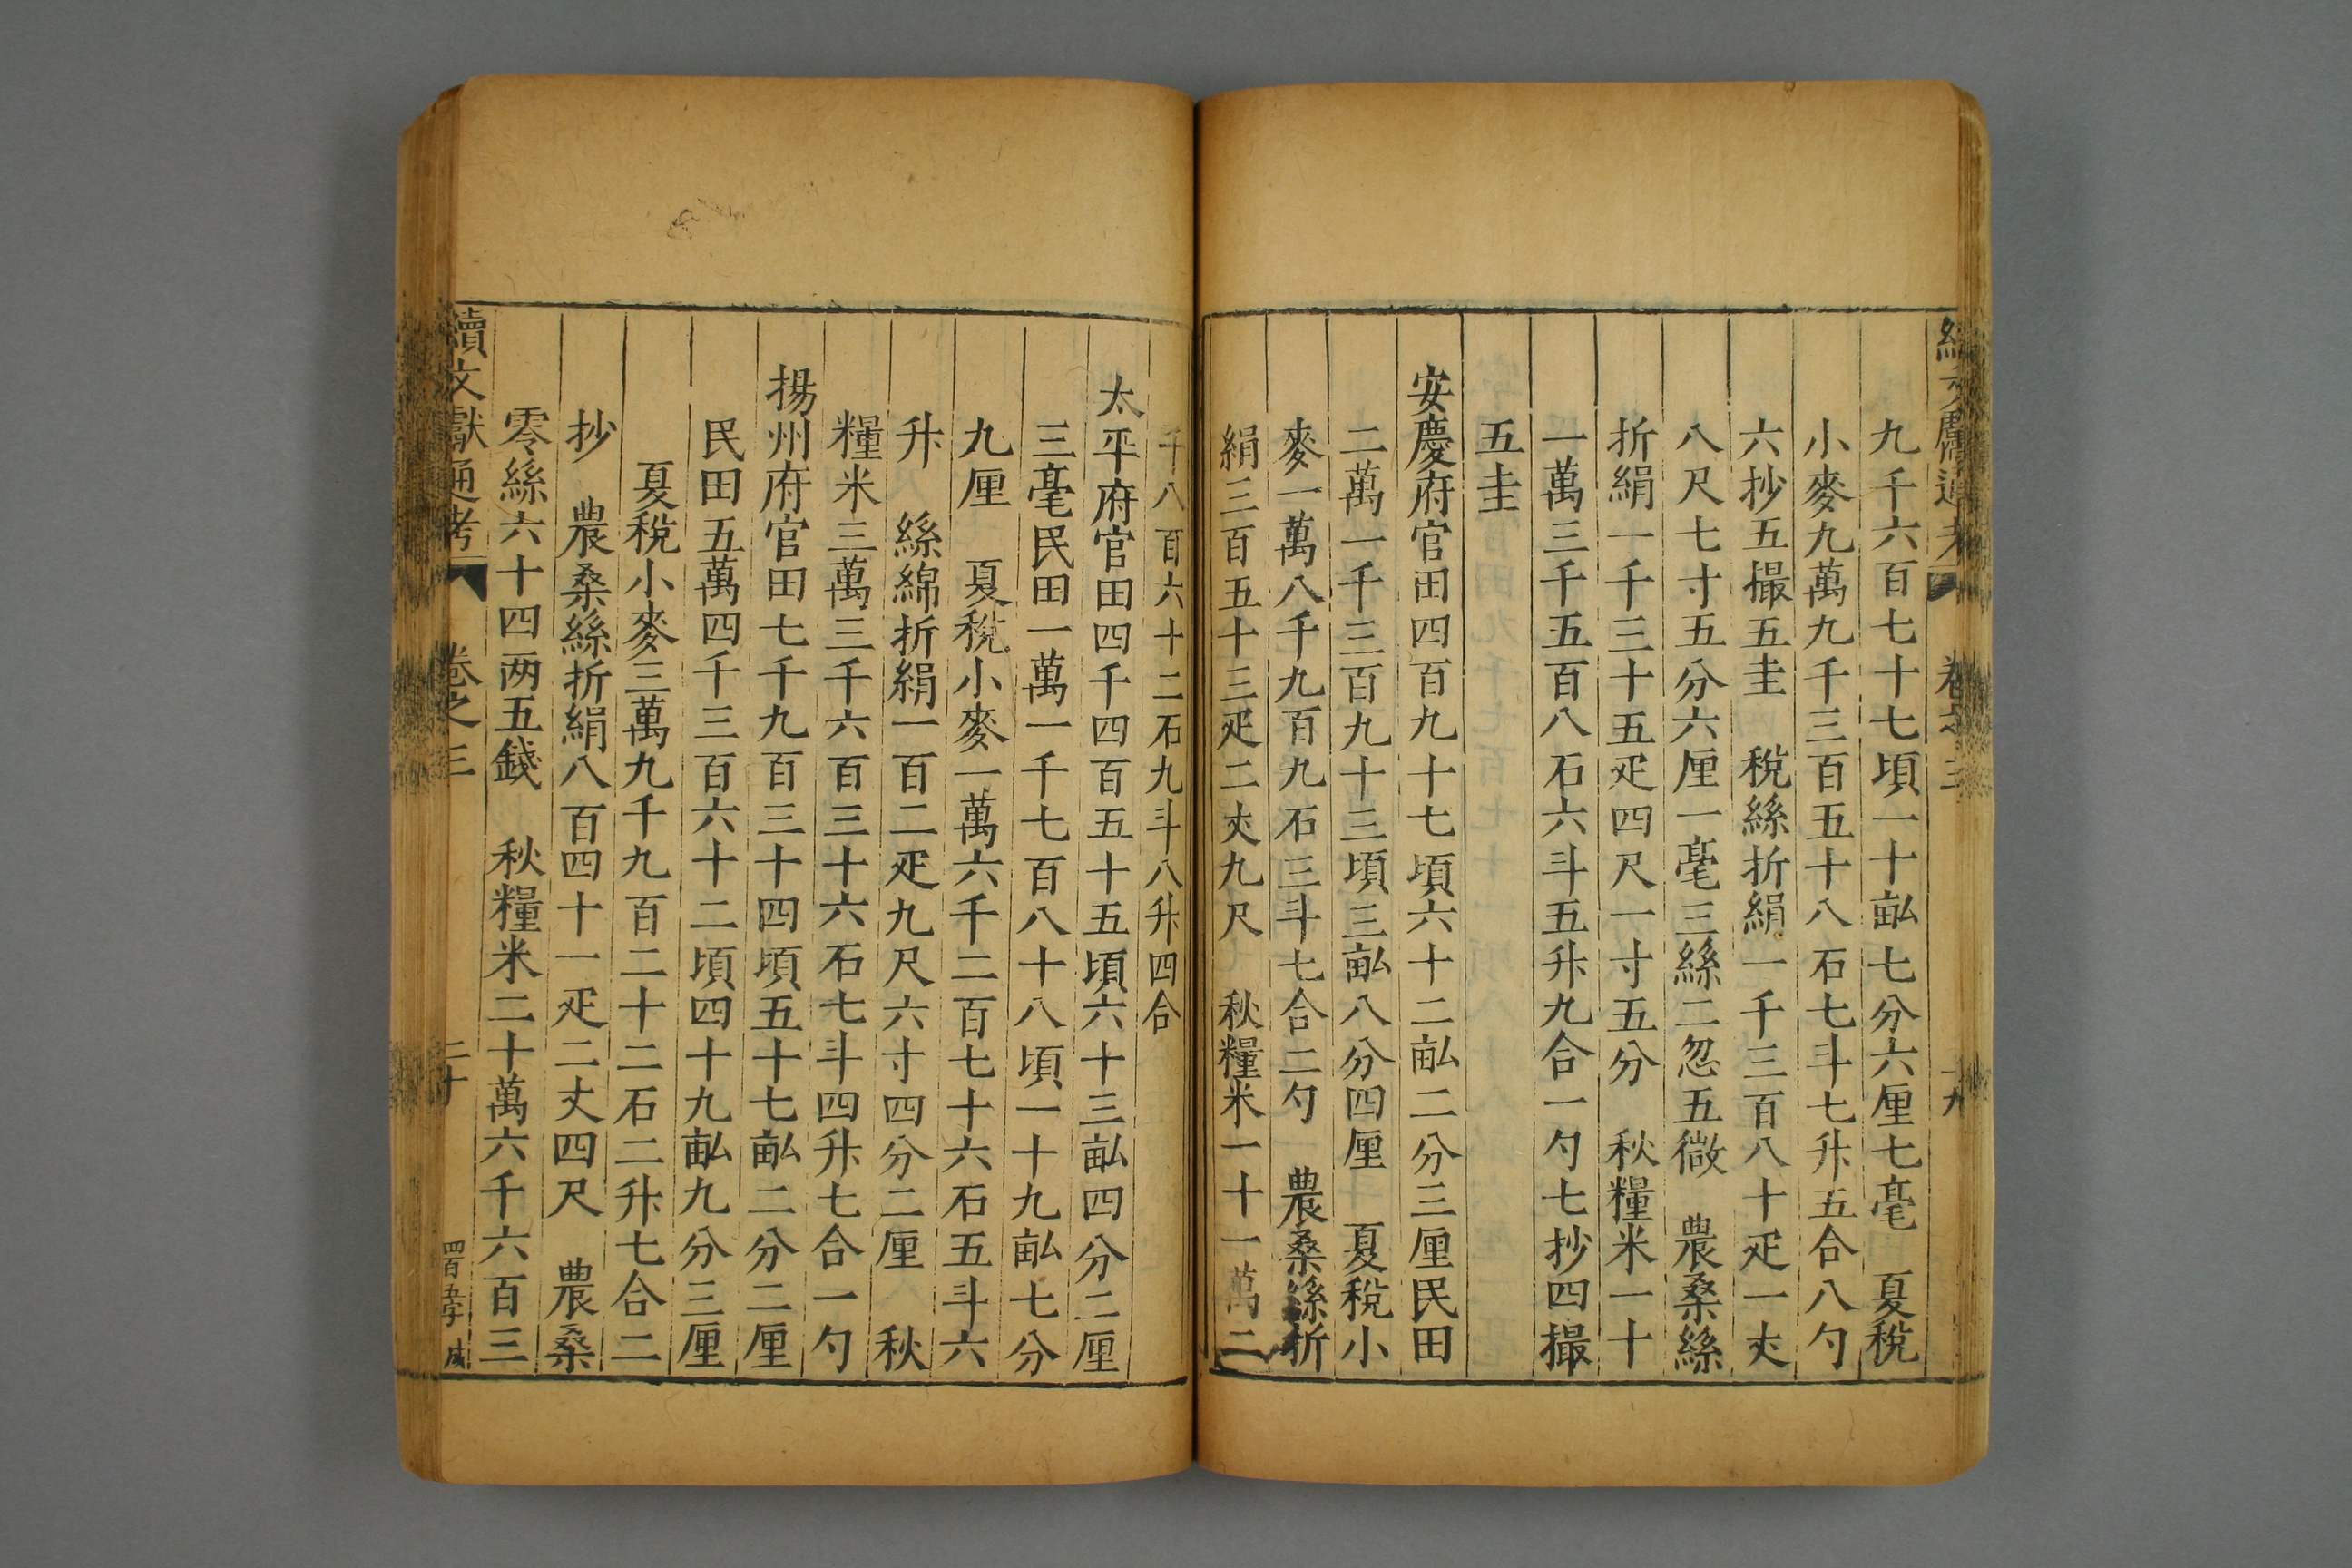 九千六百七十七頃一十畆七分六厘七毫　夏稅
小麥九萬九千三百五十八石七斗七升五合八勺
六抄五撮五圭　稅絲折絹一千三百八十疋一丈
八尺七寸五分六厘一毫三絲二忽五微　農桑絲
折絹一千三十五疋四尺一寸五分　秋糧米一十
一萬三千五百八石六斗五升九合一勺七抄四撮
五圭
安慶府官田四百九十七頃六十二畆二分三厘民田
二萬一千三百九十三頃三畆八分四厘　夏稅小
麥一萬八千九百九石三斗七合二勺　農桑絲折
絹三百五十三疋二丈九尺　秋糧米一十一萬二
千八百六十二石九斗八升四合
太平府官田四千四百五十五頃六十三畆四分二厘
三毫民田一萬一千七百八十八頃一十九畆七分
九厘　夏稅小麥一萬六千二百七十六石五斗六
升　絲綿折絹一百二疋九尺六寸四分二厘　秋
糧米三萬三千六百三十六石七斗四升七合一勺
揚州府官田七千九百三十四頃五十七畆二分二厘
民田五萬四千三百六十二頃四十九畆九分三厘
夏稅小麥三萬九千九百二十二石二升七合二
抄　農桑絲折絹八百四十一疋二丈四尺　農桑
零絲六十四两五錢　秋糧米二十萬六千六百三
續文獻通考　卷之三　二十　四百五字